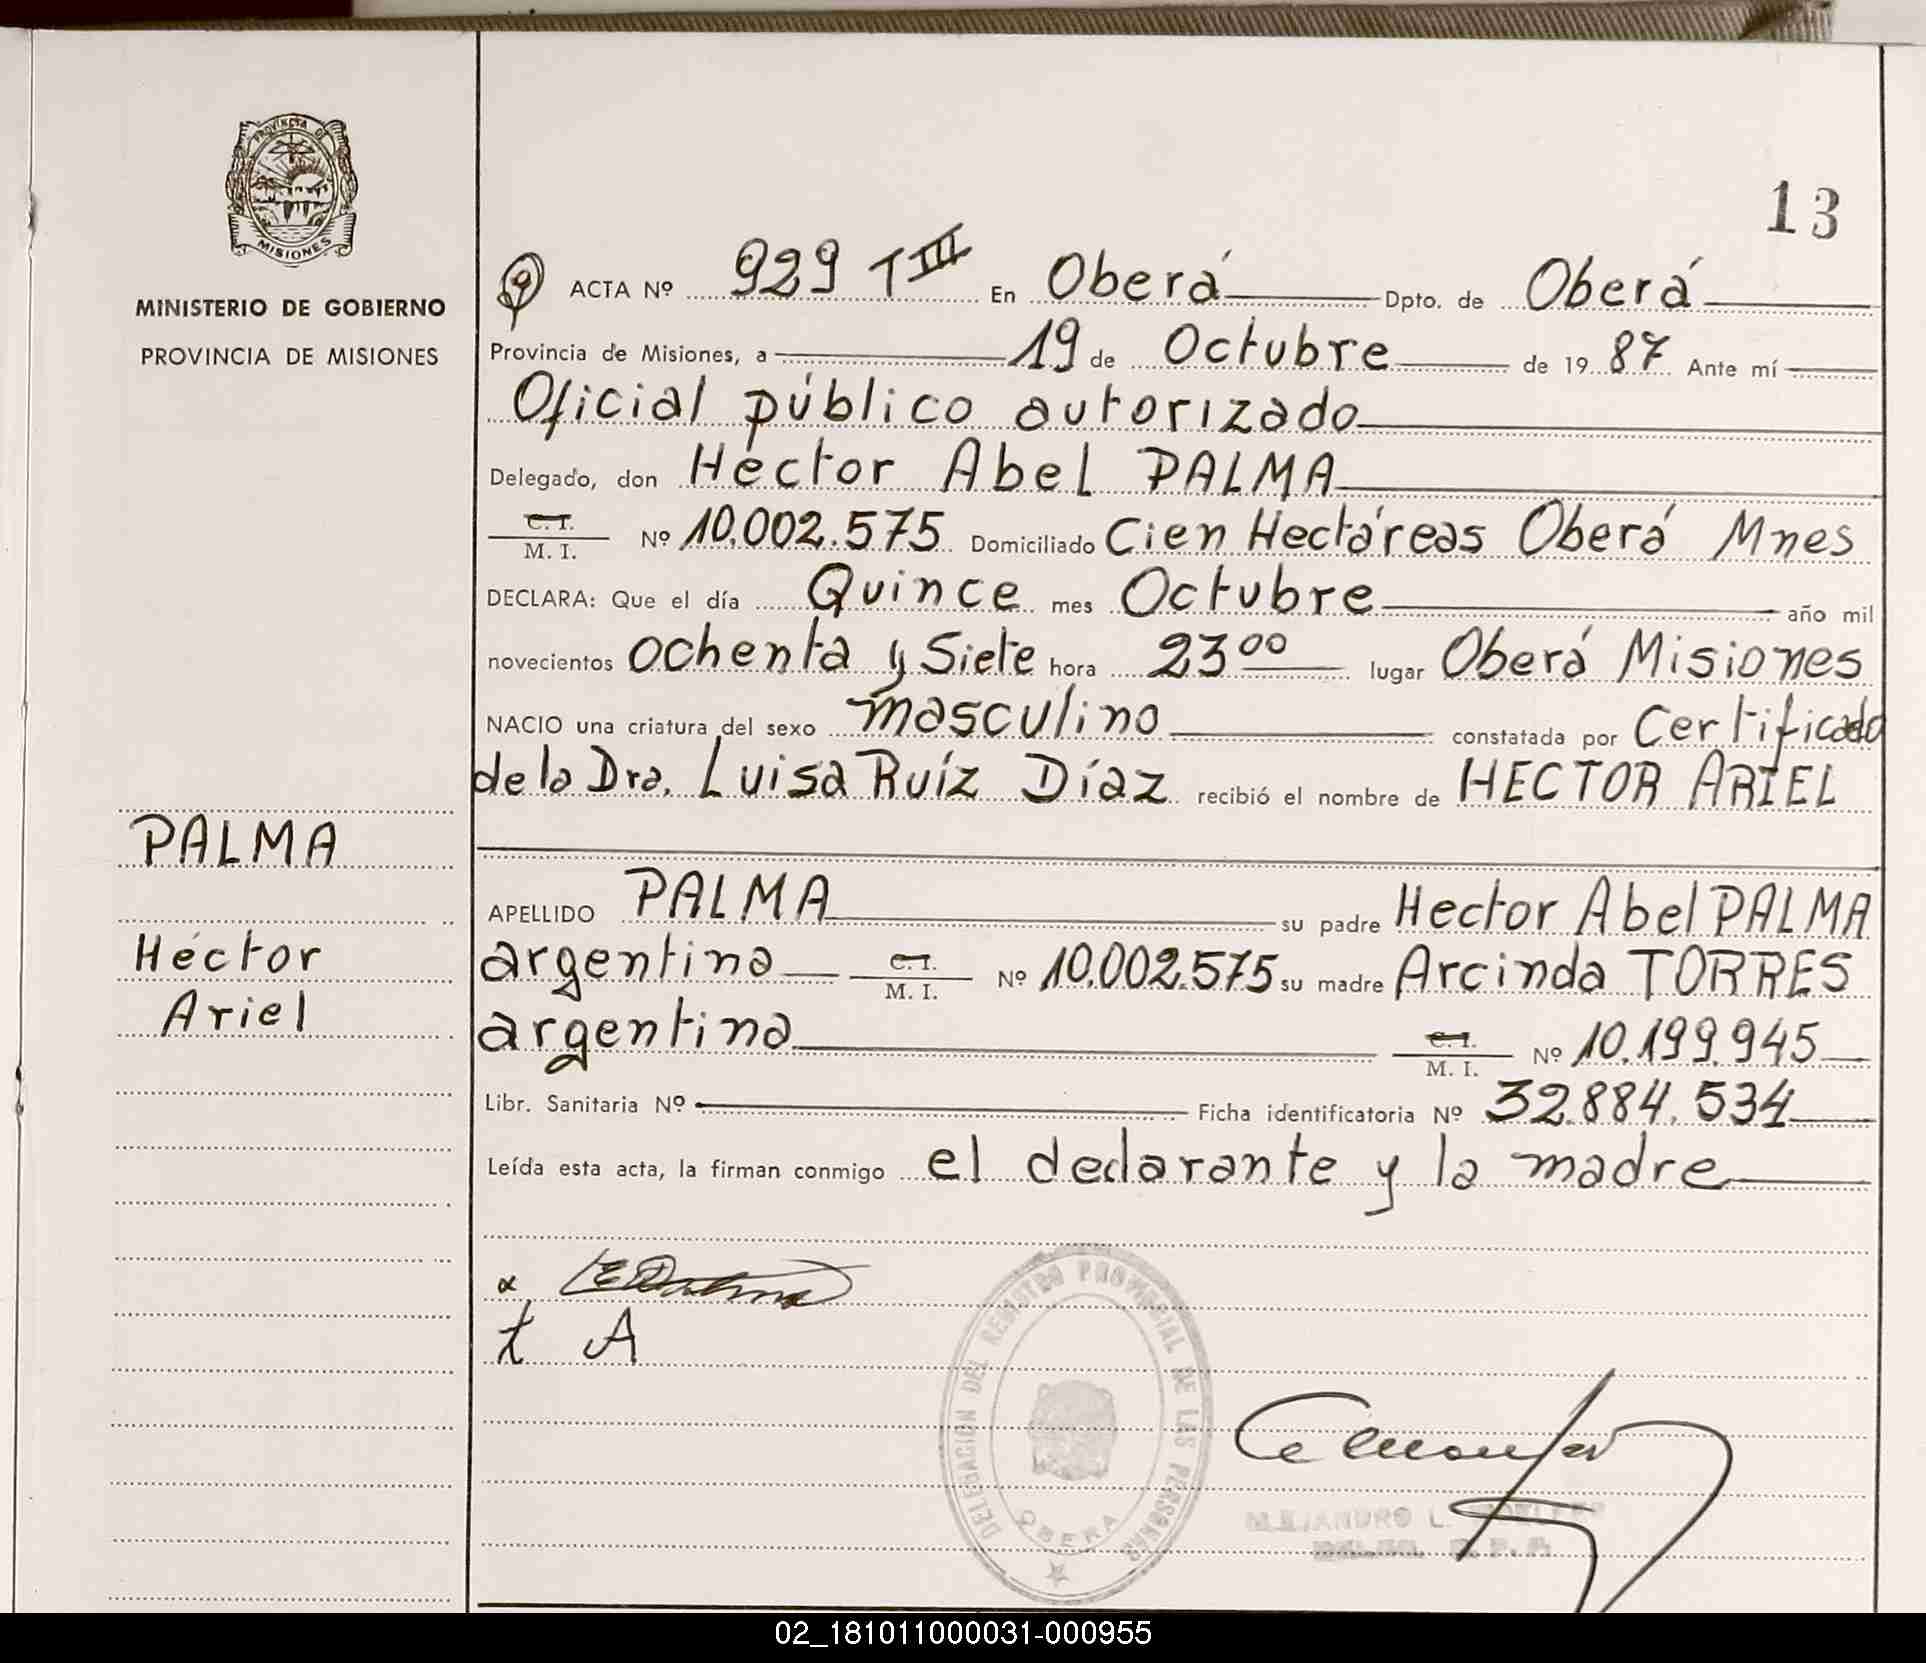 PROVINCIA DE
MISIONES
MINISTERIO DE GOBIERNO
PROVINCIA DE MISIONES
PALMA
Héctor
Ariel
13
ACTA Nº 929 T III En Oberá Dpto. de Oberá
Provincia de Misiones, a 19 de Octubre de 19 87 Ante mí
Oficial público autorizado
Delegado, don Héctor Abel PALMA
C. I.
M. I. Nº 10.002.575 Domiciliado Cien Hectáreas Oberá Mnes
DECLARA: Que el día Quince mes Octubre año mil
novecientos ochenta y Siete hora 23 00 lugar Oberá Misiones
NACIO una criatura del sexo masculino constatada por Certificado
de la Dra. Luisa Ruíz Díaz recibió el nombre de HECTOR ARIEL
APELLIDO PALMA su padre Hector Abel PALMA
argentina C. I.
M. I. Nº 10.002.575 su madre Arcinda TORRES
argentina C. I.
M. I. Nº 10.199.945
Libr. Sanitaria Nº Ficha identificatoria Nº 32.884.534
Leída esta acta, la firman conmigo el declarante y la madre
A
DELEGACION DEL REGISTRO PROVINCIAL DE LAS PERSONAS
OBERA
ALEJANDRO L.
02_181011000031-000955